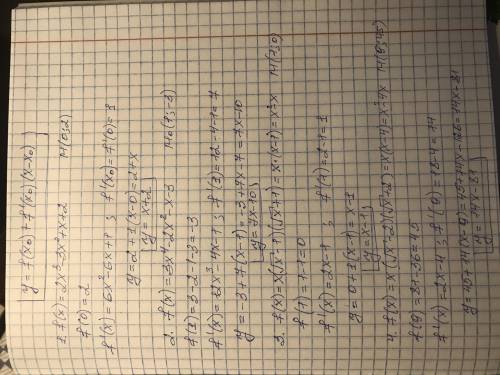 y = f(x₀) + f'(x₀)(x-x₀)
1. f(x) = 2x³-3x²+x+2 M(0;2)
f(0) = 2
f'(x) = 6x²-6x+1 ; f'(x₀) = f'(0) = 1
y = 2+1(x-0) = 2+x
y = x+2
2. f(x) = 3x⁴-2x²-x-3 M₀(1;-3)
f(1) = 3-2-1-3 = -3
f'(x) = 12x³-4x-1 ; f'(1) = 12-4-1 = 7
y = -3+7(x-1) = -3+7x-7 = 7x-10
y = 7x-10
3. f(x) = x(√x-1)(√x+1) = x·(x-1) = x²-x M(1;0)
f(1) = 1-1 = 0
f'(x) = 2x-1 ; f'(1) = 2-1 = 1
y = 0+1(x-1) = x-1
y = x-1
4. f(x) = x(√x-2)(√x+2) = x(x-4) = x²-4x M(9;45)
f(9) = 81-36 = 45
f'(x) = 2x-4 ; f'(9) = 18-4 = 14
y = 45+14(x-9) = 45+14x-126 = 14x-81
y = 14x-81